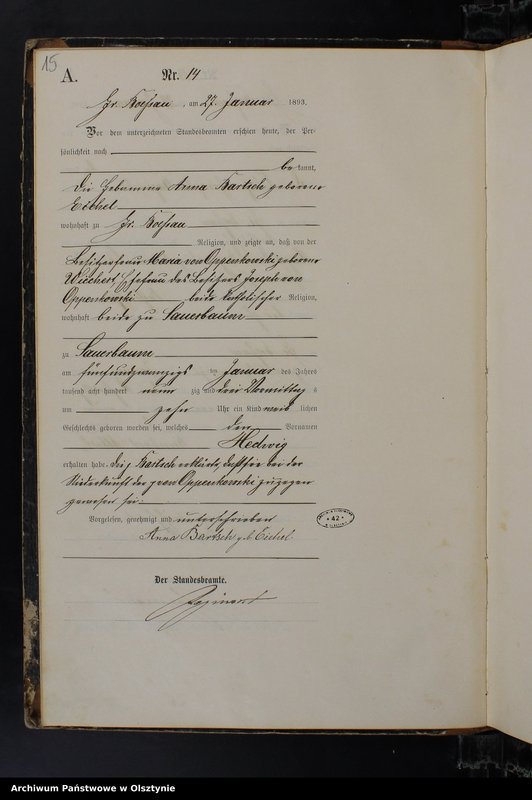 15
A. Nr. 14
Gr. Koessau, am 27. Januar 1893.
Vor dem unterzeichneten Standesbeamten erschien heute, der Per-
sönlichkeit nach
be kannt,
die Hebamme Anna Bartsch geborene
Eichel
wohnhaft zu Gr. Koessau
Religion, und zeigte an, daß von der
Besitzerfrau Maria von Oppenkowski geborene
Wiechert Ehefrau des Besitzers Joseph von
Oppenkowski beide katholischer Religion,
wohnhaft beide zu Sauerbaum
zu Sauerbaum
am fünfundzwanzigsten Januar des Jahres
tausend acht hundert neun zig und drei Vormittags
um zehn Uhr ein Kind weib lichen
Geschlechts geboren worden sei, welches den Vornamen
Hedwig
erhalten habe. Die p. Bartsch erklärte, daß sie bei der
Niederkunft der p. von Oppenkowski zugegen
gewesen sei.
Vorgelesen, genehmigt und unterschrieben
Anna Bartsch geb. Eichel
Der Standesbeamte.
* 42 *
Archiwum Państwowe w Olsztynie